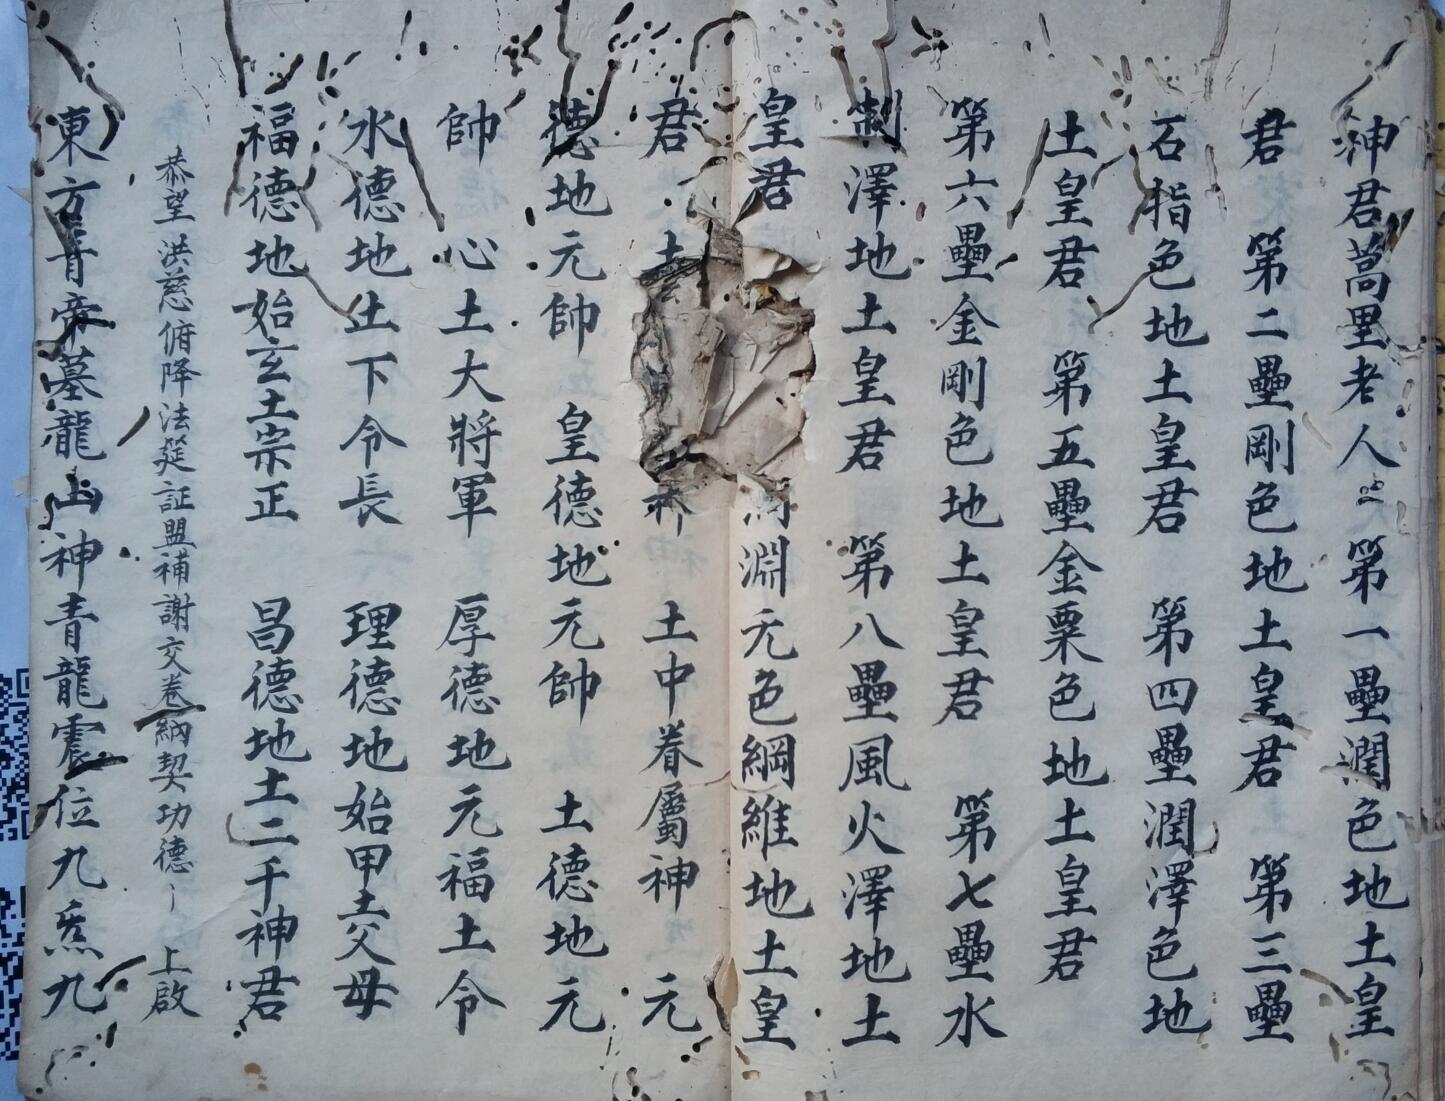 神君蒿里老人 第一壘潤色地土皇
君 第二壘剛色地土皇君 第三壘
石指色地土皇君 第四壘潤澤色地
土皇君 第五壘金粟色地土皇君
第六壘金剛色地土皇君 第七壘水
制澤地土皇君 第八壘風火澤地土
皇君 淵元色綱維地土皇
君 土中眷屬神 元
德地元帥 皇德地元帥 土德地元
帥 心土大將軍 厚德地元福土令
水德地土下令長 理德地始甲土父母
福德地始玄土宗正 昌德地土二千神君
恭望洪慈俯降法筵証盟補謝交卷納契功德 上啟
東方青帝墓龍山神青龍震位九炁九